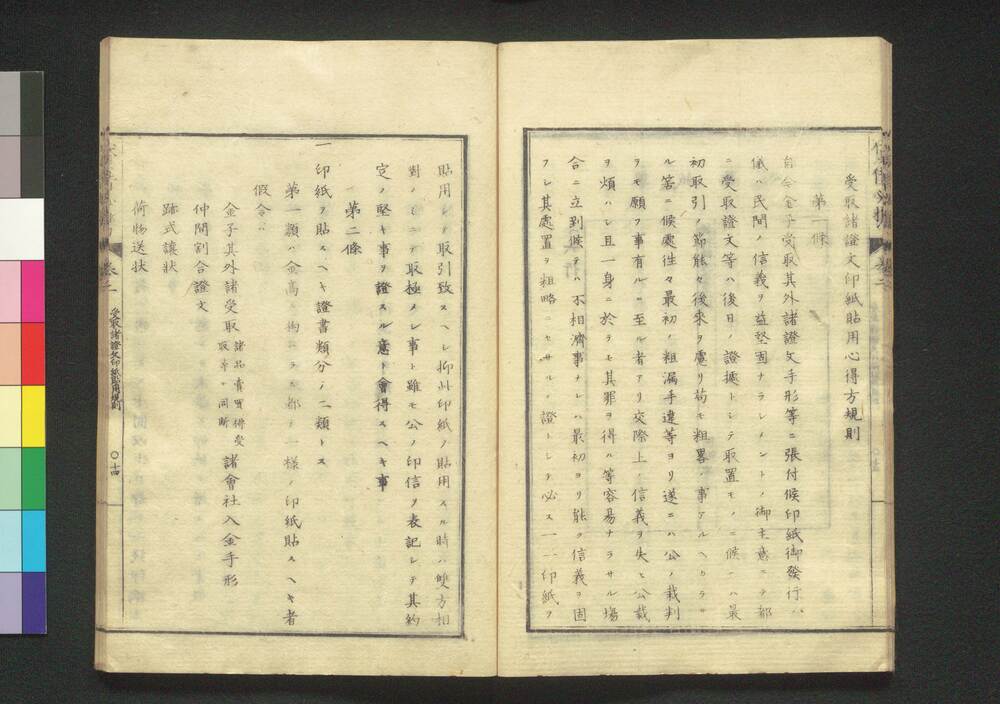 受取諸證文印紙貼用心得方規則
第一條
自今金子受取其外諸證文手形等ニ張付候印紙御發行ハ
儀ハ民間ノ信義ヲ益堅固ナラシメントノ御主意ニテ都
ニ受取證文等ハ後日ノ證據トシテ取置モノニ候ハ最
初取引ノ節能々後来ヲ慮リ苟モ粗畧ノ事アルヘカラサ
ル筈ニ候處往々最初ノ粗漏手違等ヨリ遂ニハ公ノ裁判
ヲモ願フ事有ルニ至ル者アリ交際上ノ信義ヲ失ヒ公裁
ヲ煩ハシ且一身ニ於テモ其罪ヲ得ル等容易ナラサル場
合ニ立到候テハ不相濟事ナレハ最初ヨリ能ク信義ヲ固
フシ其處置ヲ粗略ニセサルノ證トシテ必ス一一印紙ヲ
貼用シテ取引致スヘシ抑此印紙ノ貼用スル時ハ雙方相
對ノミニテ取極メシ事ト雖モ公ノ印信ヲ表記シテ其約
定ノ堅キ事ヲ證スルノ意ト會得スヘキ事
第二條
一印紙ヲ貼スヘキ證書類分ノ二類トス
第一類ハ金高ニ拘ハラス都テ一様ノ印紙貼スヘキ者
假令ハ
金子其外諸受取 諸品賣買佛受取等ハ同断 諸會社入金手形
仲間割合證文
跡式讓狀
荷物送狀
卷二
受取諸證文印紙貼用規則
〇十四